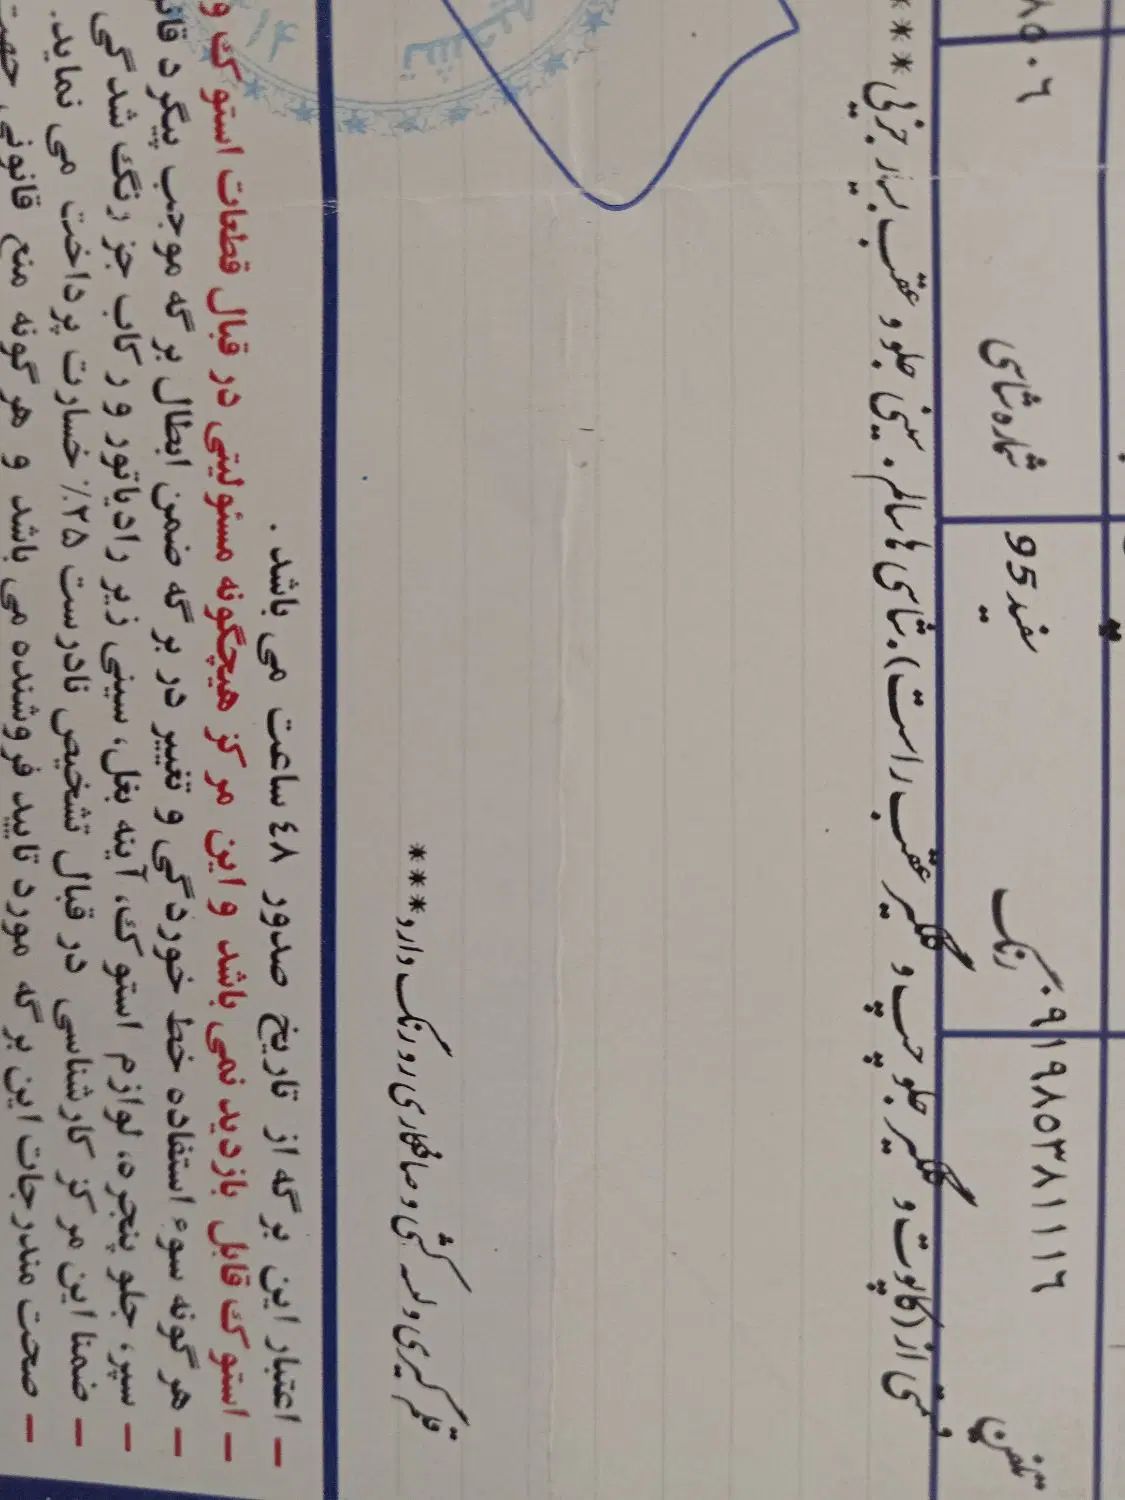 تلفن ۰۹۱۹۸۵۳۸۱۱۱۶ رنگ سفید 95 شماره شاسی ۸۵۰۶
قسمتی از (کاپوت و گلگیر جلو چپ و گلگیر عقب راست). شاسی ها سالم. سینی جلو و عقب بسیار جزئی ***
قلم گیری و لیسه کشی و صافکاری و رنگ دارد ***
– اعتبار این برگه از تاریخ صدور ٤۸ ساعت می باشد .
– استوک قابل بازدید نمی باشد و این مرکز هیچگونه مسئولیتی در قبال قطعات استوک و
– هر گونه سوء استفاده خط خوردگی و تغییر در برگه ضمن ابطال برگه موجب پیگرد
– سپر، جلو پنجره، لوازم استوک، آینه بغل، سینی زیر رادیاتور و رکاب جز رنگ شدگی
– ضمنا این مرکز کارشناسی در قبال تشخیص نادرست ۲۵٪ خسارت پرداخت می نماید.
– صحت مندرجات این برگه مورد تایید فروشنده می باشد و هر گونه منع قانونی جهت